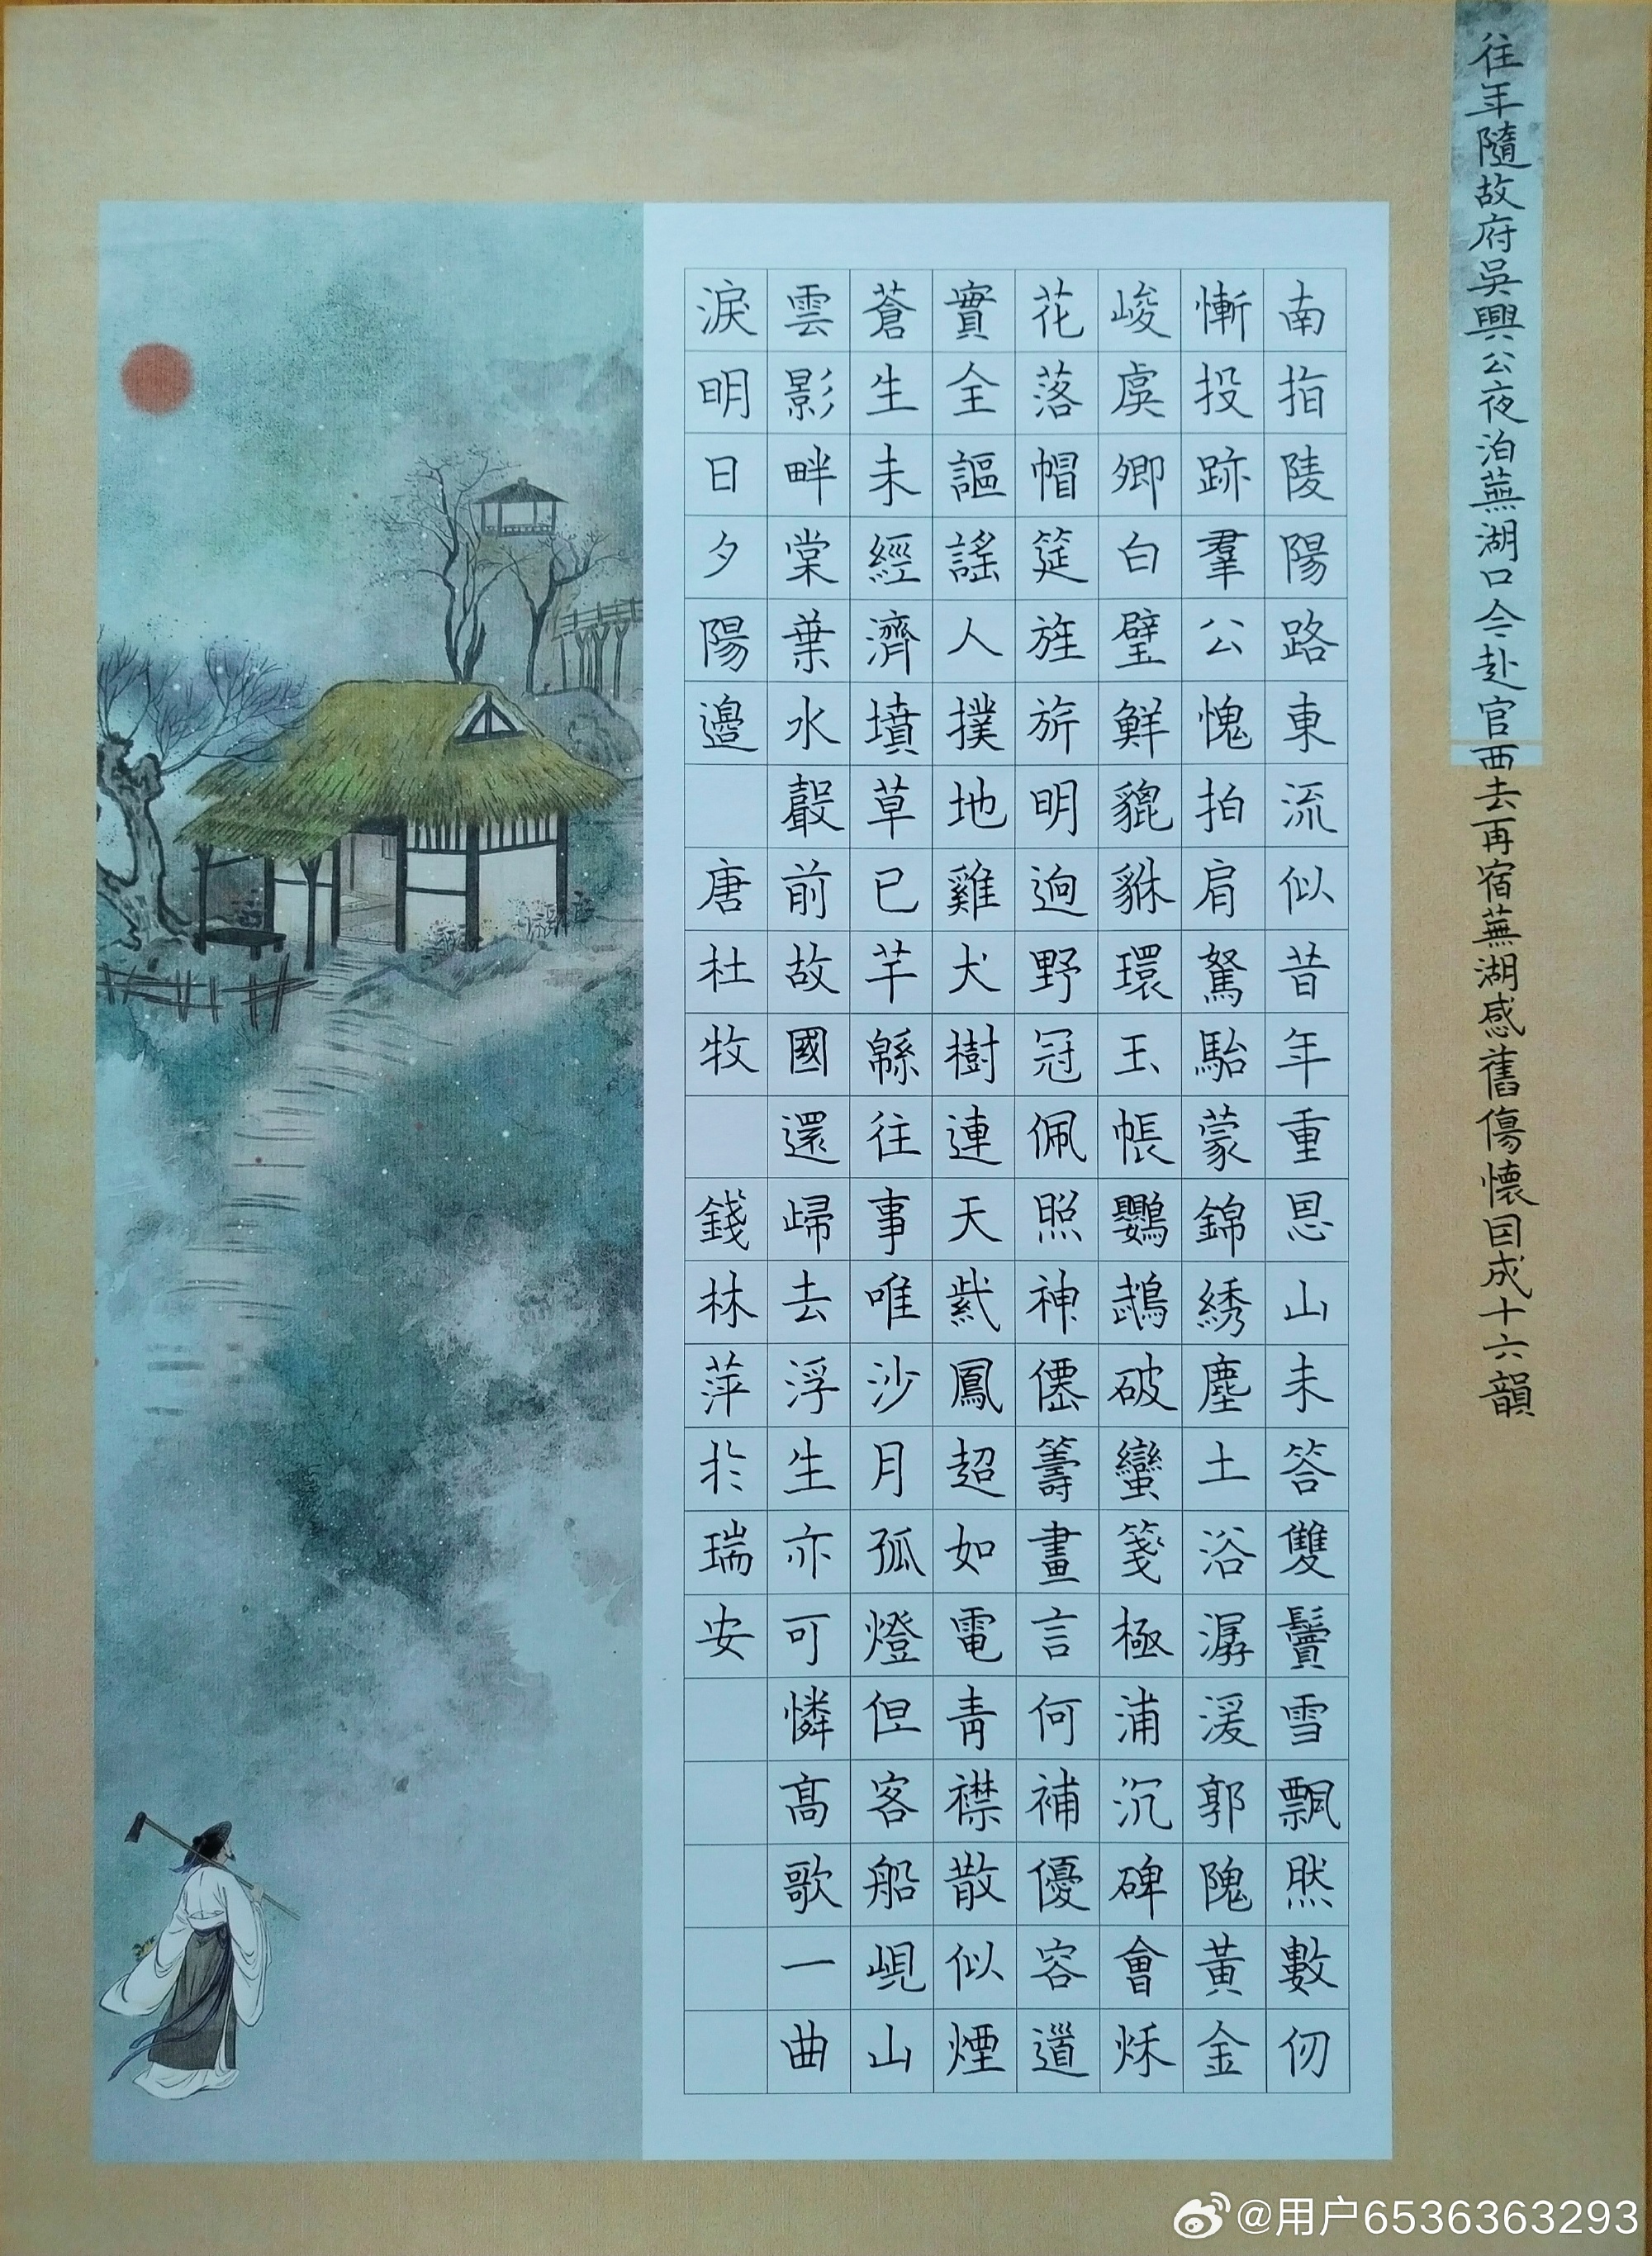 往年隨故府吳興公夜泊蕪湖口今赴官西去再宿蕪湖感舊傷懷因成十六韻
南指陵陽路東流似昔年重恩山未答雙鬢雪飄然數仞
慚投跡羣公愧拍肩駑駘蒙錦綉塵土浴潺湲郭隗黃金
峻虞卿白璧鮮貔貅環玉帳鸚鵡破蠻箋極浦沉碑會秌
花落帽筵旌旂明迥野冠佩照神僊籌畫言何補優容道
實全謳謠人撲地雞犬樹連天紫鳳超如電青襟散似煙
蒼生未經濟墳草已芊緜往事唯沙月孤燈但客船峴山
雲影畔棠葉水聲前故國還歸去浮生亦可憐高歌一曲
淚明日夕陽邊 唐杜牧 錢林萍於瑞安
@用户6536363293